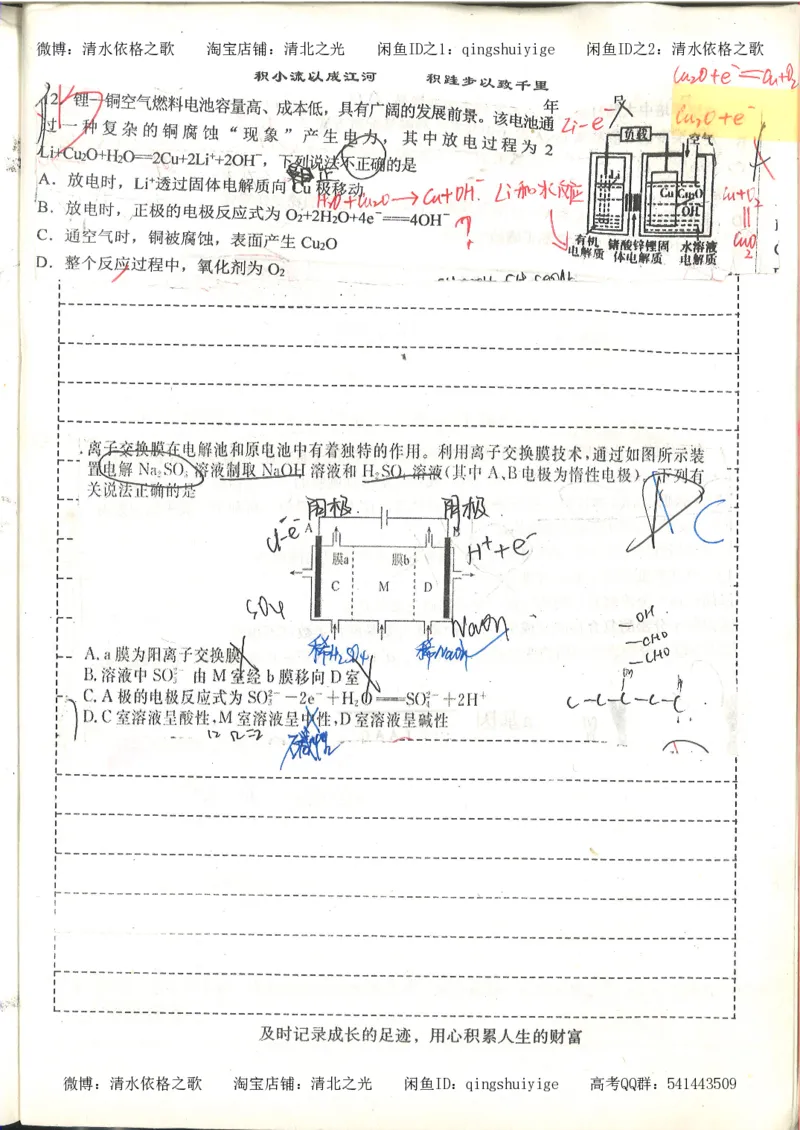 微博：清水依格之歌 淘宝店铺：清北之光 闲鱼ID之1：qingshuiyige 闲鱼ID之2：清水依格之歌
积小流以成江河 积跬步以致千里
Cu₂O+e⁻=Cu+O₂
12. 锂—铜空气燃料电池容量高、成本低，具有广阔的发展前景。该电池通
年
过一种复杂的铜腐蚀“现象”产生电力，其中放电过程为 2
Li+Cu₂O+H₂O==2Cu+2Li⁺+2OH⁻，下列说法不正确的是
A．放电时，Li⁺透过固体电解质向 Cu 极移动
B．放电时，正极的电极反应式为 O₂+2H₂O+4e⁻===4OH⁻
C．通空气时，铜被腐蚀，表面产生 Cu₂O
D．整个反应过程中，氧化剂为 O₂
H₂O+Cu₂O→Cu+OH⁻
Li和水反应
?
Li-e⁻
Cu₂O+e⁻
负载
空气
Li
Cu
Cu₂O
OH⁻
有机电解质
锗酸锌锂固体电解质
水溶液电解质
Cu+O₂
CuO₂
离子交换膜在电解池和原电池中有着独特的作用。利用离子交换膜技术，通过如图所示装
置电解 Na₂SO₃ 溶液制取 NaOH 溶液和 H₂SO₄ 溶液(其中 A、B 电极为惰性电极)。下列有
关说法正确的是
C
A
B
膜a
膜b
C
M
D
H⁺+e⁻
SO₄
NaOH
稀H₂SO₄
稀NaOH
A. a 膜为阳离子交换膜
B. 溶液中 SO₃²⁻ 由 M 室经 b 膜移向 D 室
C. A 极的电极反应式为 SO₃²⁻－2e⁻＋H₂O===SO₄²⁻＋2H⁺
D. C 室溶液呈酸性，M 室溶液呈中性，D 室溶液呈碱性
碱性
OH
-CHO
-CHO
C-C-C-C-C
及时记录成长的足迹，用心积累人生的财富
微博：清水依格之歌 淘宝店铺：清北之光 闲鱼ID：qingshuiyige 高考QQ群：541443509